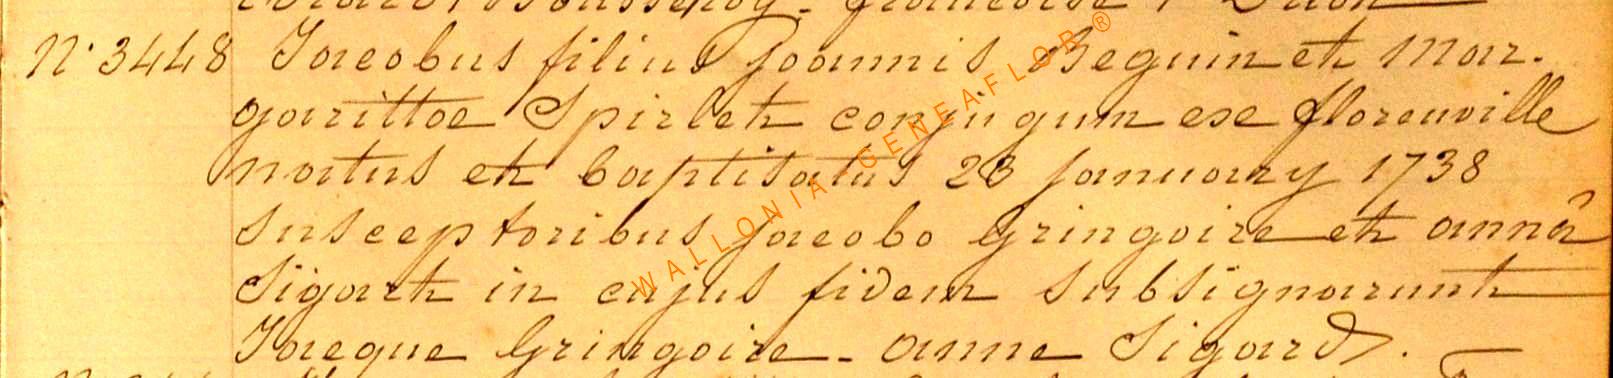 françoise
N° 3448 Jacobus filius Joannis Beguin et Mar-
garittae Spirlet conjugum ex florenville
natus et baptisatus 23 January 1738
susceptoribus jacobo Gringoire et annâ
Sigart in cujus fidem subsignarunt
Jacque Gringoire - anne Sigard.
WALLONIA "GENEAFLOR"®